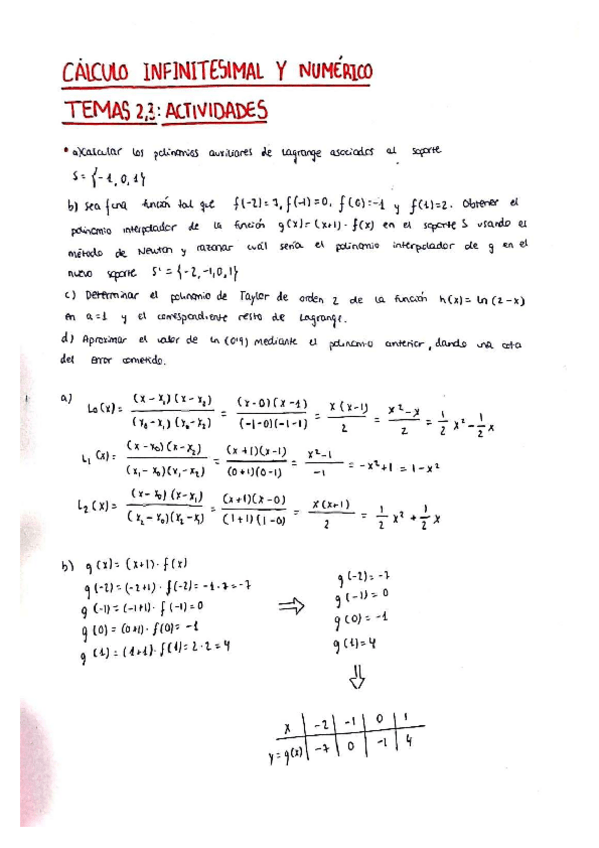 CÁLCULO INFINITESIMAL Y NUMÉRICO
TEMAS 2,3: ACTIVIDADES
• a) Calcular los polinomios auxiliares de Lagrange asociados al soporte
S = {-1, 0, 1}
b) Sea f una función tal que f(-2)=7, f(-1)=0, f(0)=-1 y f(1)=2. Obtener el
polinomio interpolador de la función g(x)=(x+1)·f(x) en el soporte S usando el
método de Newton y razonar cuál sería el polinomio interpolador de g en el
nuevo soporte S' = {-2,-1,0,1}
c) Determinar el polinomio de Taylor de orden 2 de la función h(x) = ln(2-x)
en a=1 y el correspondiente resto de Lagrange.
d) Aproximar el valor de ln(0'9) mediante el polinomio anterior, dando una cota
del error cometido.
a) L₀(x) = (x-x₁)(x-x₂) / (x₀-x₁)(x₀-x₂) = (x-0)(x-1) / (-1-0)(-1-1) = x(x-1) / 2 = x²-x / 2 = 1/2 x² - 1/2 x
L₁(x) = (x-x₀)(x-x₂) / (x₁-x₀)(x₁-x₂) = (x+1)(x-1) / (0+1)(0-1) = x²-1 / -1 = -x²+1 = 1-x²
L₂(x) = (x-x₀)(x-x₁) / (x₂-x₀)(x₂-x₁) = (x+1)(x-0) / (1+1)(1-0) = x(x+1) / 2 = 1/2 x² + 1/2 x
b) g(x) = (x+1)·f(x)
g(-2) = (-2+1)·f(-2) = -1·7 = -7
g(-1) = (-1+1)·f(-1) = 0
g(0) = (0+1)·f(0) = -1
g(1) = (1+1)·f(1) = 2·2 = 4
⇒
g(-2) = -7
g(-1) = 0
g(0) = -1
g(1) = 4
⇓
x | -2 | -1 | 0 | 1
y = g(x) | -7 | 0 | -1 | 4